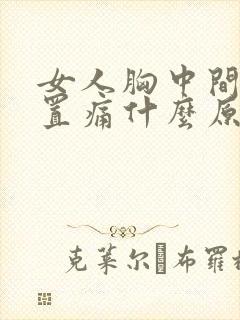 女人胸中間
置痛什麼原
克莱尔 布羅